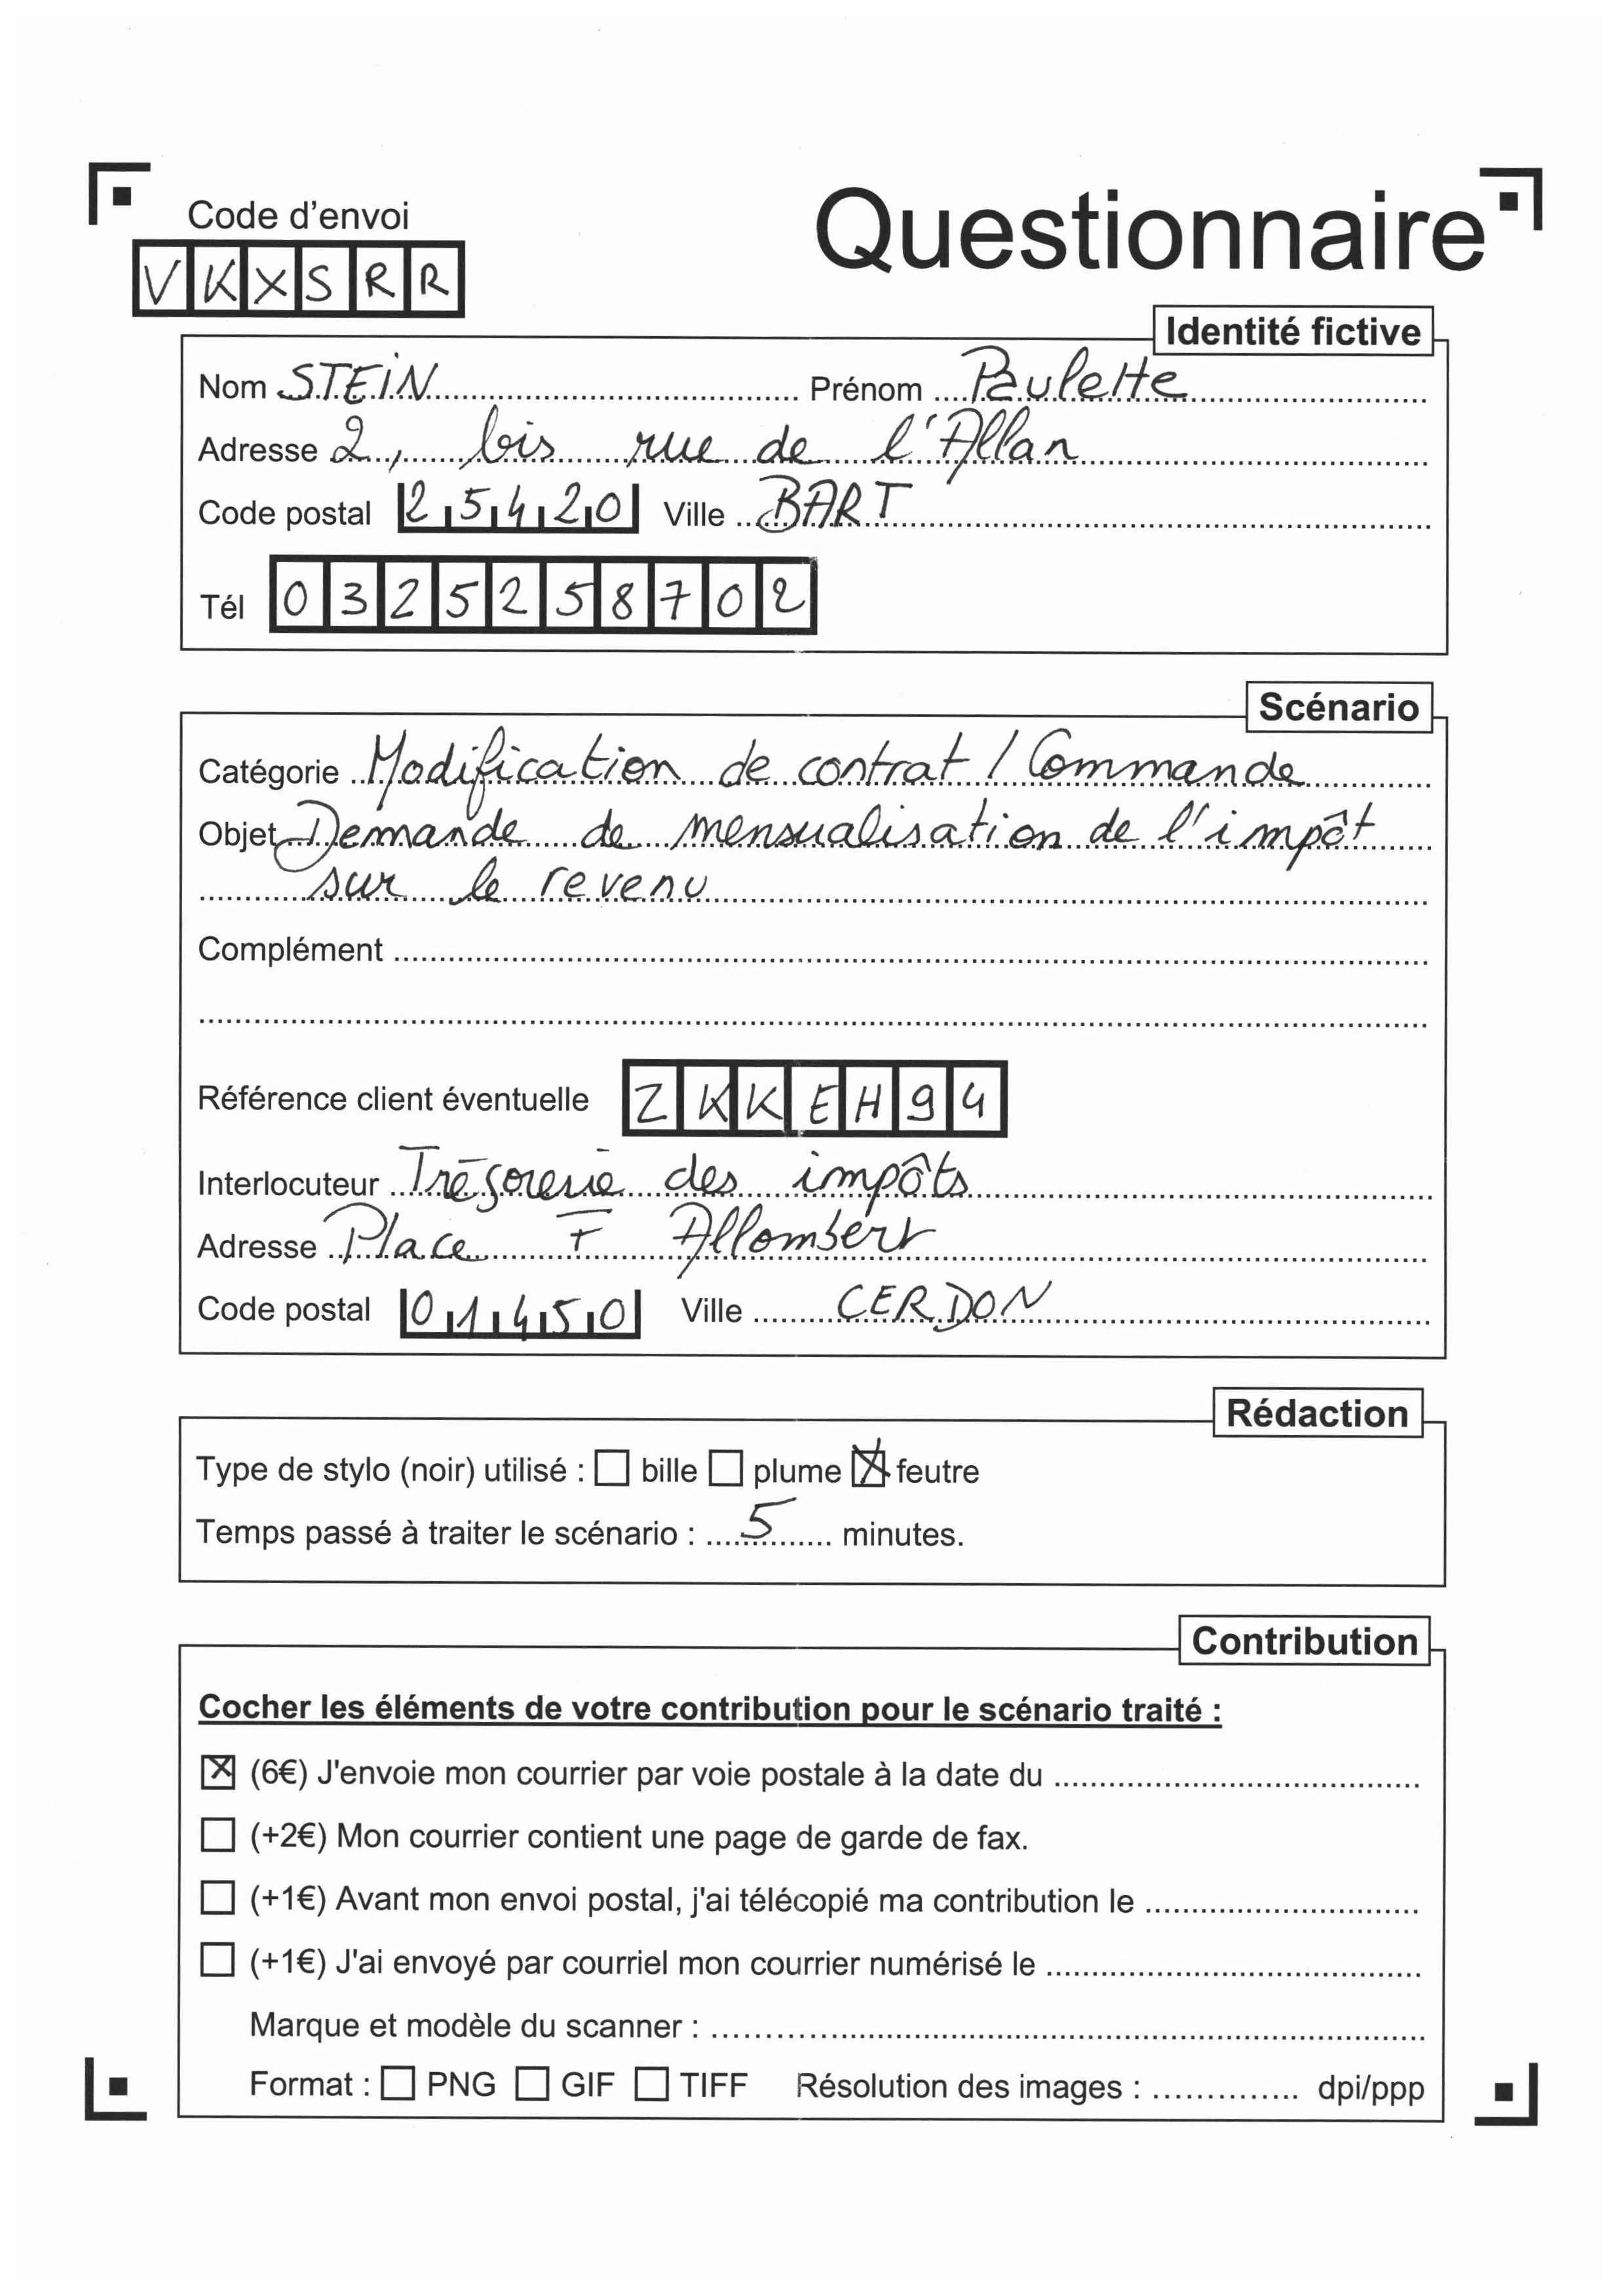 Code d'envoi
Questionnaire
VKXSRR
Identité fictive
Nom STEIN Prénom Paulette
Adresse 2, bis rue de l'Allan
Code postal 25420 Ville BART
Tél 0325258702
Scénario
Catégorie Modification de contrat / Commande
Objet Demande de mensualisation de l'impôt
sur le revenu
Complément
Référence client éventuelle ZKKEH94
Interlocuteur Trésorerie des impôts
Adresse Place F Allombert
Code postal 01450 Ville CERDON
Rédaction
Type de stylo (noir) utilisé : bille plume feutre
Temps passé à traiter le scénario : 5 minutes.
Contribution
Cocher les éléments de votre contribution pour le scénario traité :
(6€) J'envoie mon courrier par voie postale à la date du
(+2€) Mon courrier contient une page de garde de fax.
(+1€) Avant mon envoi postal, j'ai télécopié ma contribution le
(+1€) J'ai envoyé par courriel mon courrier numérisé le
Marque et modèle du scanner :
Format : PNG GIF TIFF Résolution des images : dpi/ppp